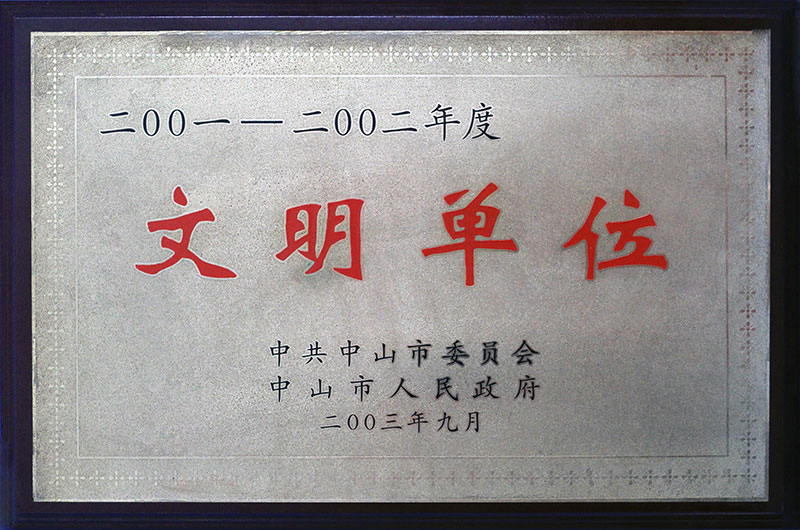 二00一—二00二年度
文明单位
中共中山市委员会
中山市人民政府
二00三年九月